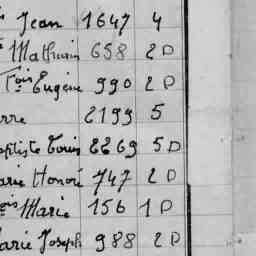 Jean 1647 4
Mathurin 658 2D
Fois Eugène 990 2D
rre 2199 5
aptiste Louis 2269 5D
arie Honoré 747 2D
ois Marie 156 1D
arie Joseph 988 2D